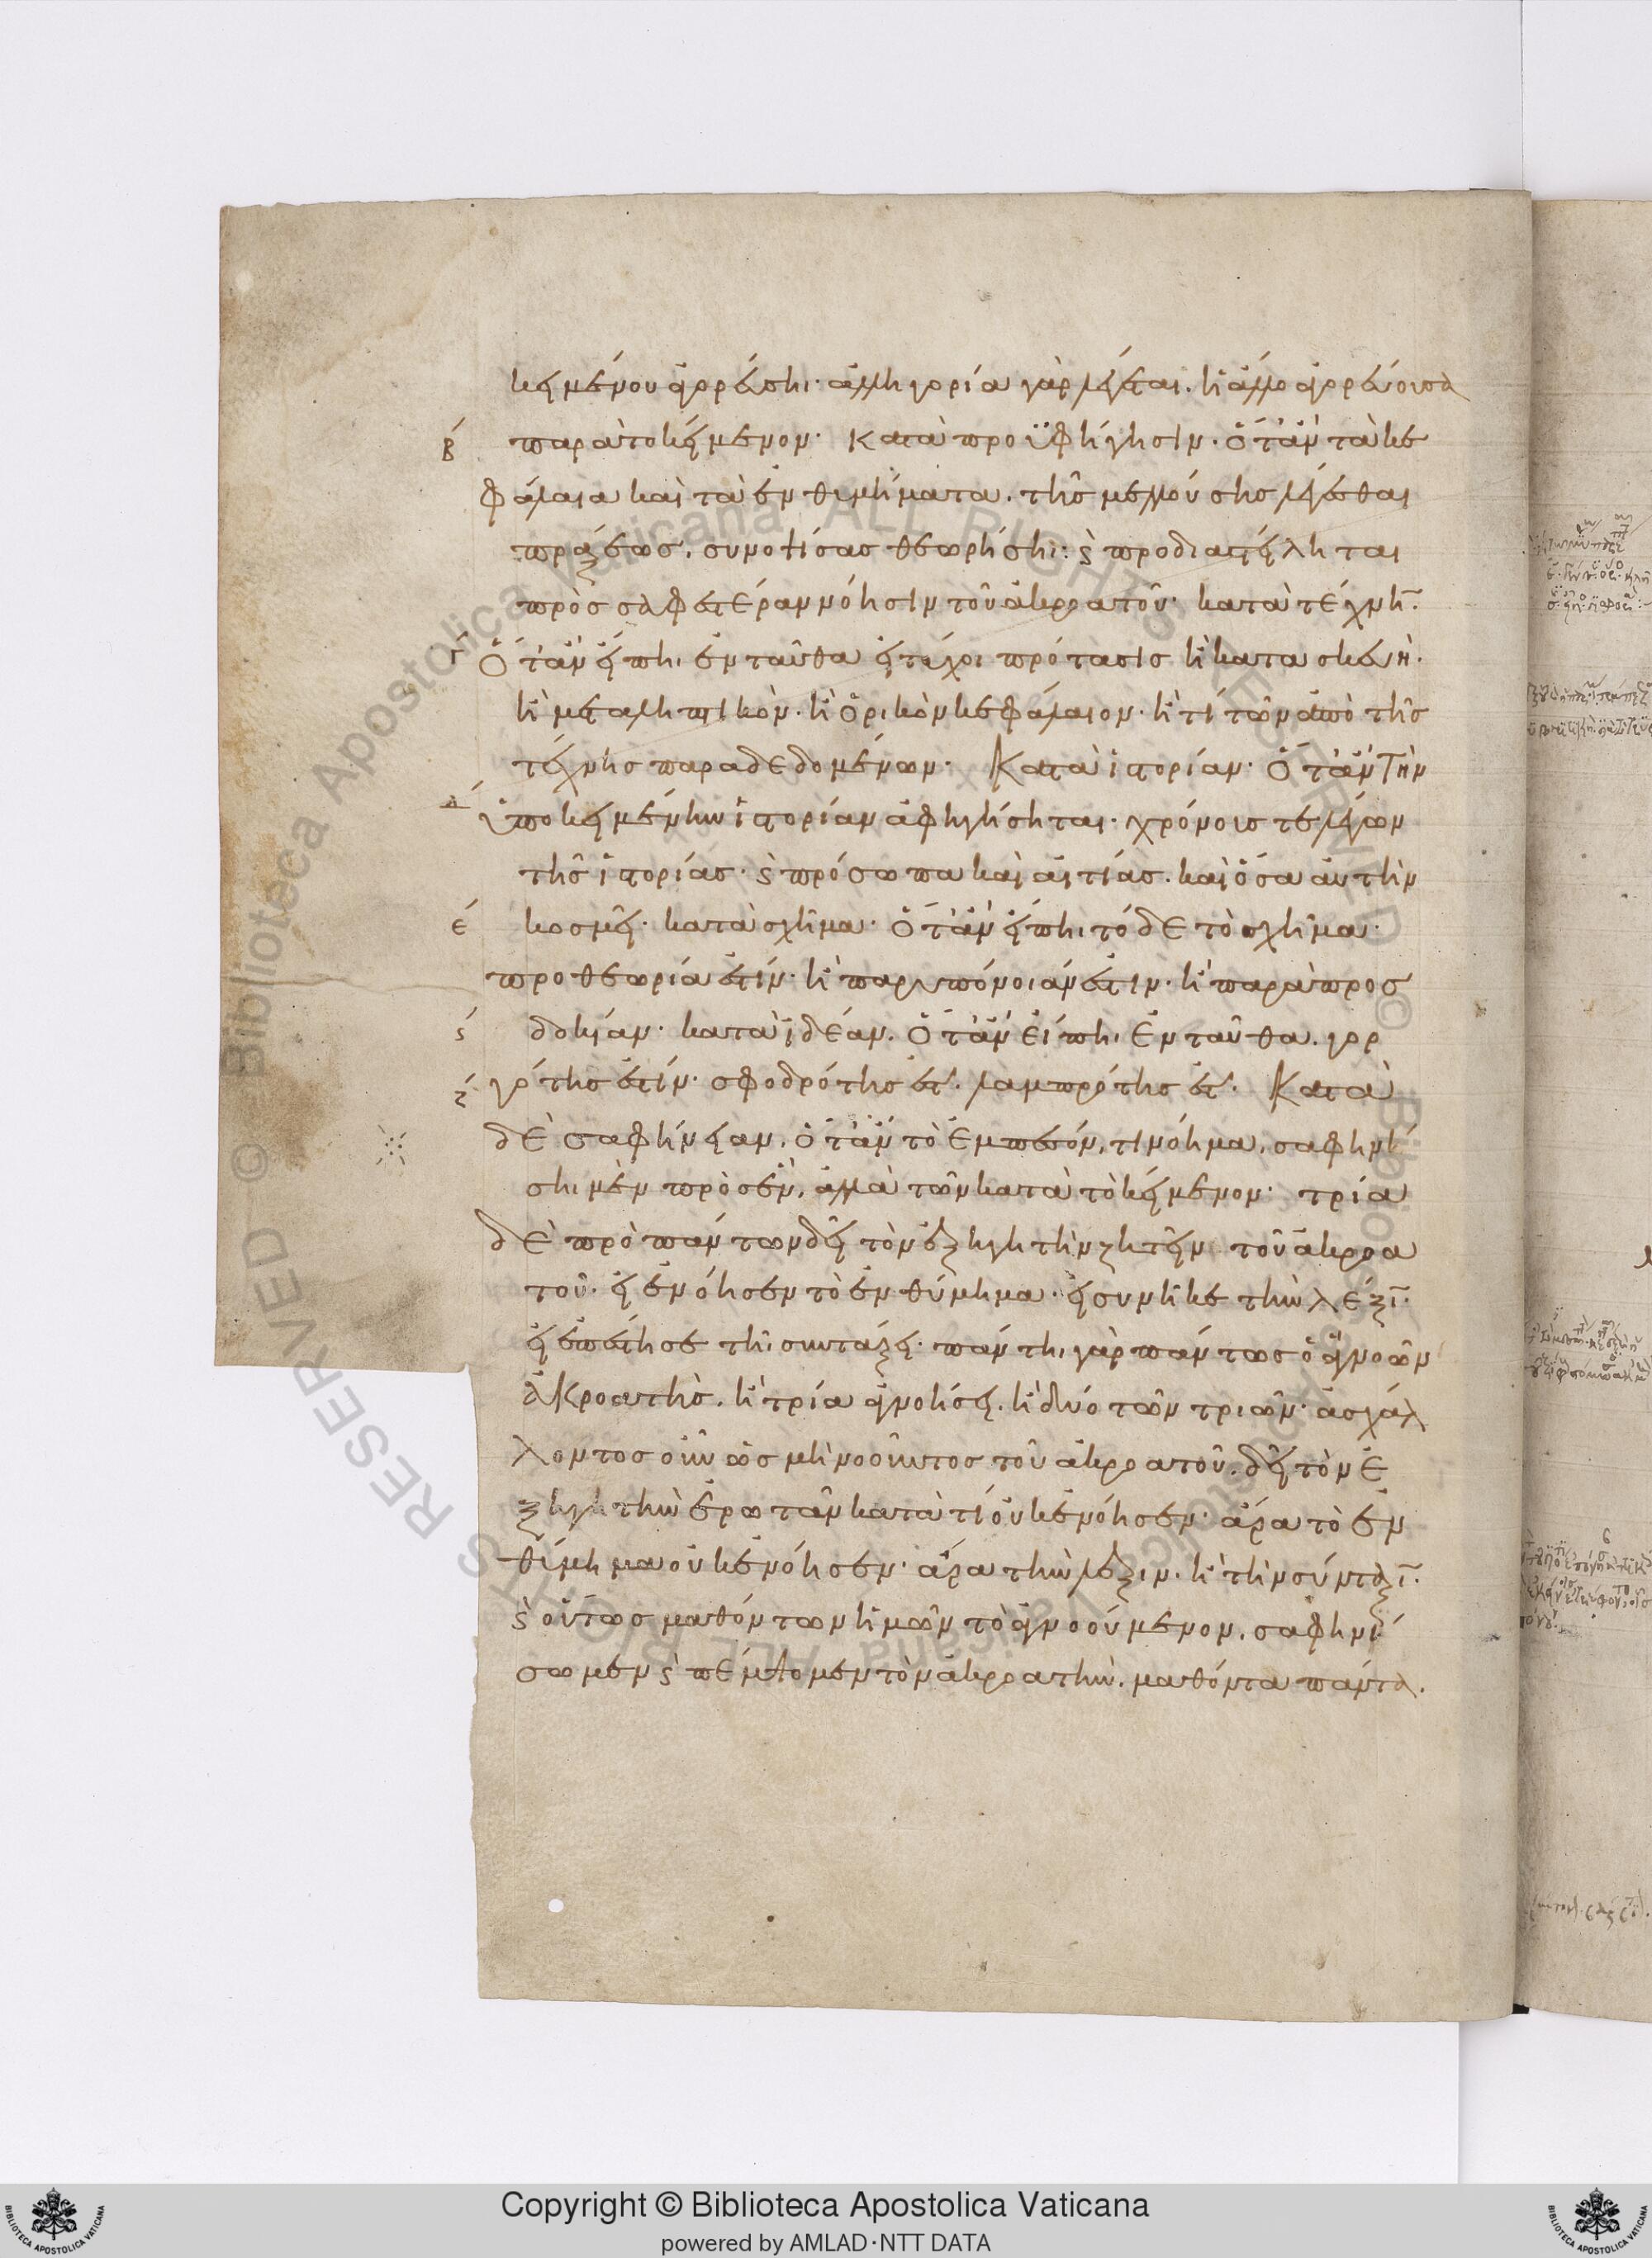 κειμένου εὑρεθείη· ἀλληγορία γὰρ λέγεται. ἢ ἄλλο
β παρὰ τὸ κείμενον· κατὰ προϋφήγησιν. ὅταν τὰ κε
φάλαια καὶ τὰ ἐνθυμήματα. τῆς μελλούσης λέγεσθαι
πράξεως. συνοπτίσας θεωρήση: ϛ προδιαστείληται
πρὸς σαφεστέραν νόησιν τοῦ ἀκροατοῦ· κατὰ τέχνη̅.
γ ὅταν εἴπηι ἐνταῦθα εἰ τύχοι πρότασις ἢ κατασκευὴ.
ἢ μεταληπτικὸν. ἢ ὁρικὸν κεφάλαιον. ἤ τι τῶν ἀπὸ τῆς
τέχνης παραδεδομένων· Κατὰ ἱστορίαν· ὅταν τὴν
δ ὑποκειμένην ἱστορίαν ἀφηγήσηται. χρόνοις τελείων
τῆς ἱστορίας. ϛ πρόσωπα καὶ αἰτίας. καὶ ὅσα αὐτὴν
ε κοσμεῖ. κατὰ σχῆμα· ὅταν εἴπηι τόδε τὸ σχῆμα.
προθεωρία ἐστίν. ἢ παρυπόνοιάν ἐστιν. ἢ παρὰ προσ
ϛ δοκίαν. κατὰ ἰδέαν. ὅταν εἴπηι ἐνταῦθα. γορ
ζ γότης ἐστίν. σφοδρότης ἐστ. λαμπρότης ἐστ. Κατὰ
δὲ σαφήνειαν. ὅταν τὸ ἐμπεσόν, τι νόημα, σαφηνί
ση μὲν πρὸς ἓν, ἀλλὰ τῶν κατὰ τὸ κείμενον· τρία
δὲ πρὸ πάντων δεῖ τὸν ἐξηγητὴν ζητεῖν τοῦ ἀκροα
τοῦ. εἰ ἐνόησεν τὸ ἐνθύμημα. εἰ συνῆκε τὴν λέξι̅.
εἰ ἐπέστησε τῆ συντάξει. πάντη γὰρ πάντως ὁ ἀγνοῶν
ἀκροατὴς. ἢ τρία ἀγνοήσει. ἢ δύο τῶν τριῶν· ἀσχάλ
λοντος οὖν ὡς μὴ νοοῦντος τοῦ ἀκροατοῦ. δεῖ τὸν ἐ
ξηγητὴν ἐρωτᾶν κατὰ τί οὐκ ἐνόησεν. ἆρα τὸ ἐν
θύμημα οὐκ ἐνόησεν. ἆρα τὴν λέξιν. ἢ τὴν σύνταξι̅.
ϛ οὕτως μαθόντων ἡμῶν τὸ ἀγνοούμενον, σαφηνί
σωμεν ϛ πέμπομεν τὸν ἀκροατὴν. μαθόντα πάντα.
Copyright © Biblioteca Apostolica Vaticana
powered by AMLAD·NTT DATA